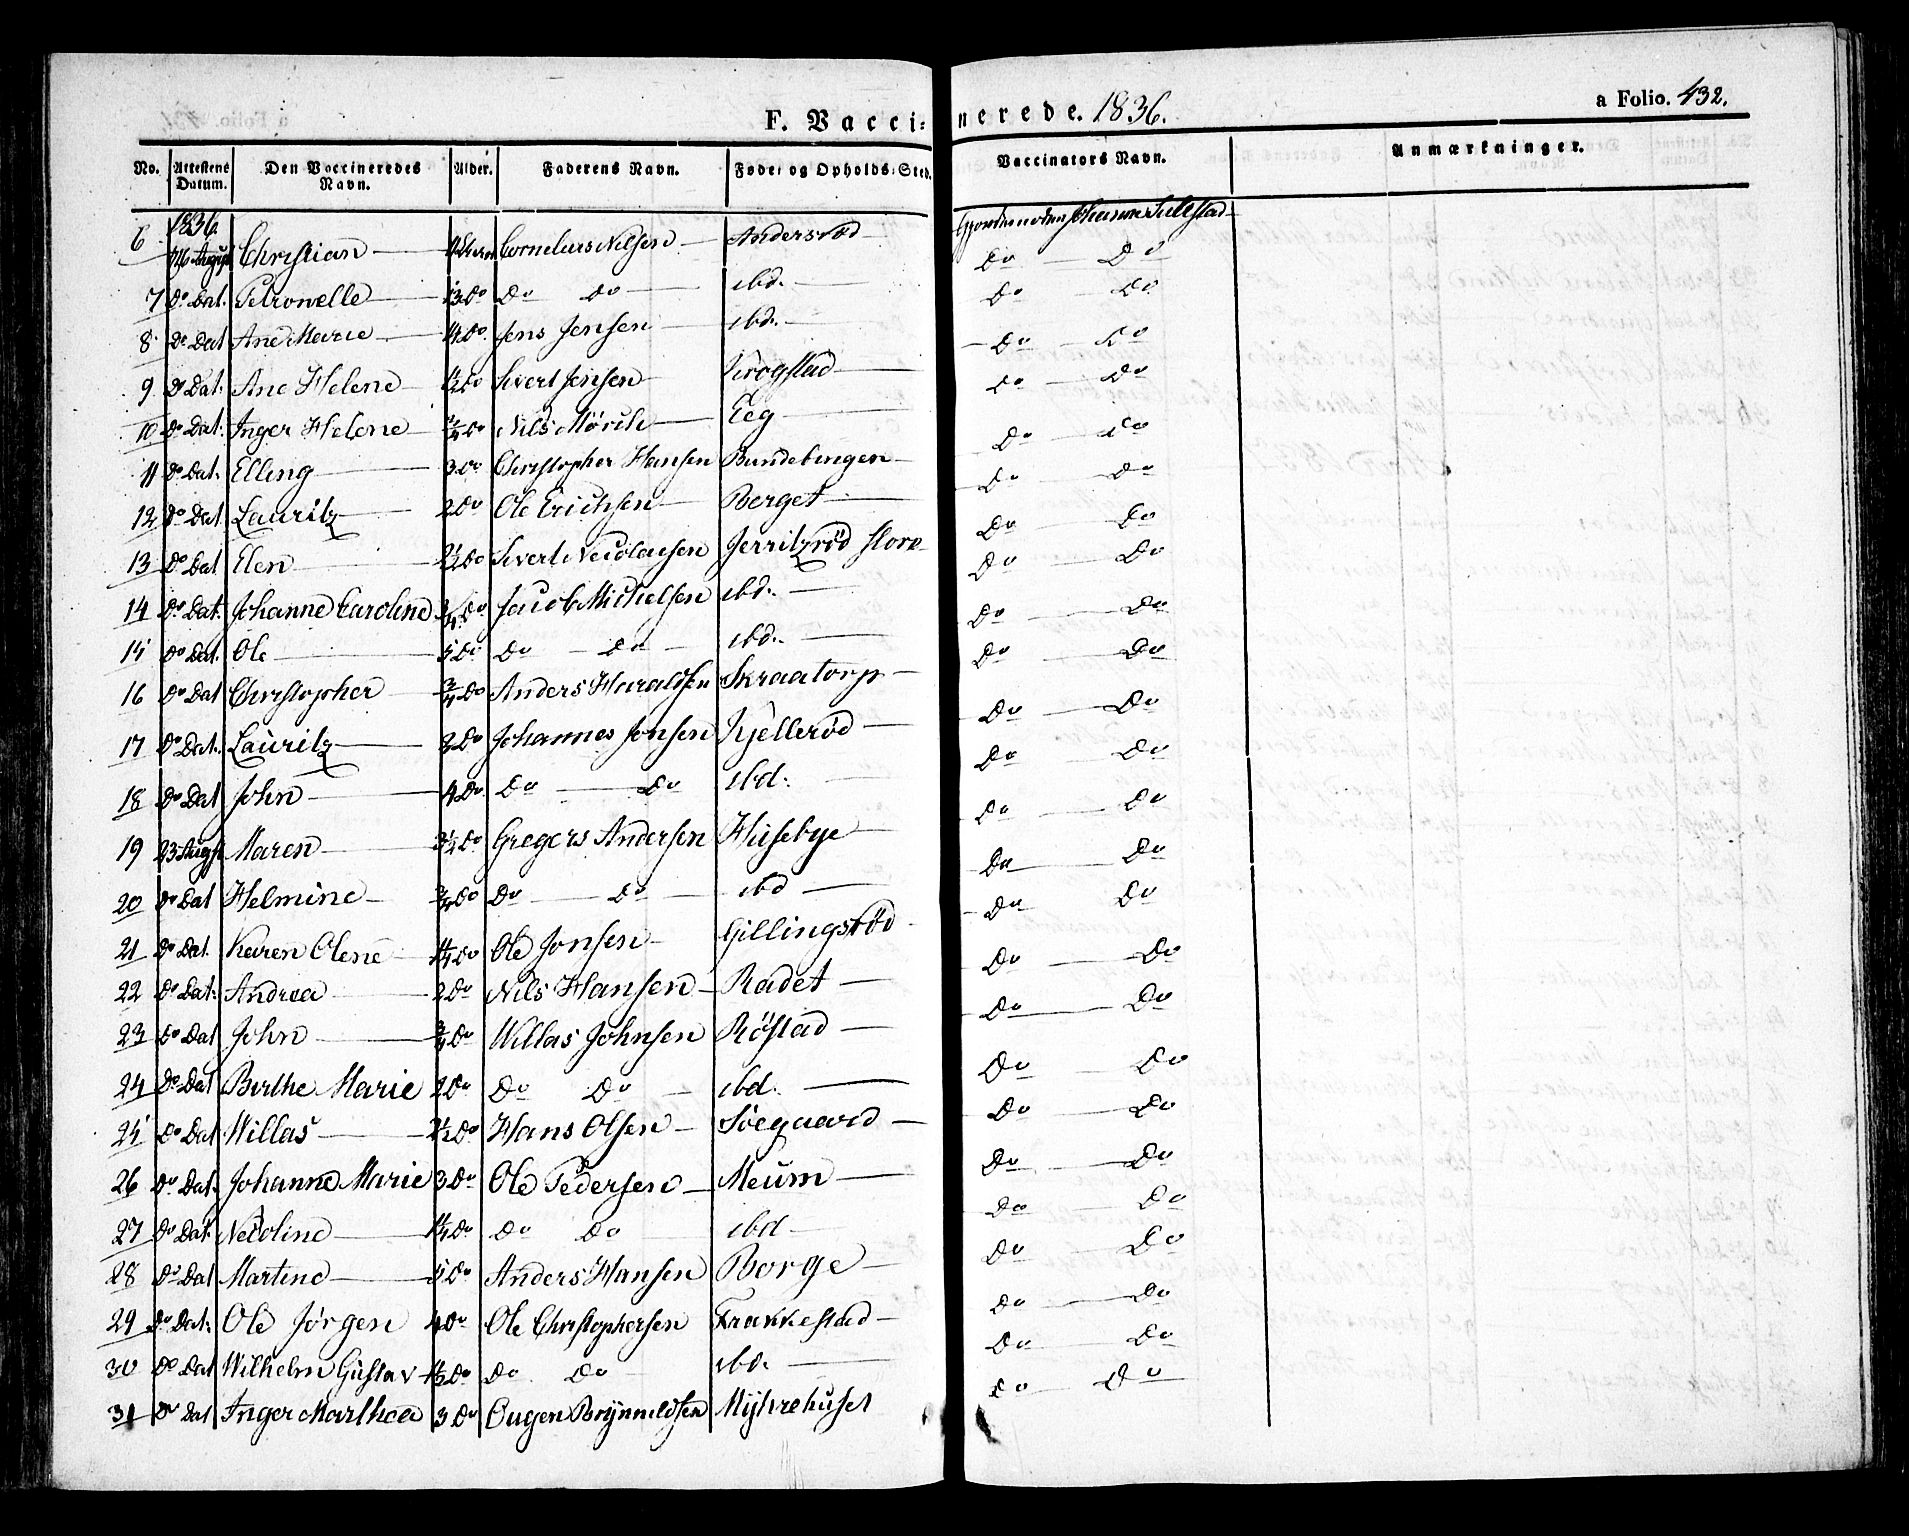 F. Vaccinerede. 1836. a Folio. 432.
No. Attestens Datum. Den Vaccineredes Navn. Alder. Faderens Navn. Føde- og Opholds-Sted. Vaccinators Navn. Anmærkninger.
1836
6 16 August Christian Cornelius Nilsen Andersrød Gjordemoden Johanne
7 Do Dat. Petronelle 13 Do Do Do ibd. Do Do
8 Do Dat Ane Marie Do Jens Jensen ibd. Do Do
9 Do Dat. Ane Helene 1/2 Do Sivert Jensen Krogstad Do Do
10 Do Dat. Inger Helene 3/4 Do Nils Eeg Do Do
11 Do Dat. Elling 3 Do Christopher Hansen Bundebingen Do Do
12 Do Dat Lauritz 2 Do Ole Erichsen Berget Do Do
13 Do Dat Elen 2 1/2 Do Sivert Nicolaisen Jerritzrød store Do Do
14 Do Dat. Johanne Caroline 3/4 Do Jacob Michelsen ibd. Do Do
15 Do Dat. Ole 5 Do Do Do ibd. Do Do
16 Do Dat Christopher 3/4 Do Anders Haraldsen Skraatorp Do Do
17 Do Dat. Lauritz 2 Do Johannes Jonsen Kjellerød Do Do
18 Do Dat John 4 Do Do Do ibd. Do Do
19 23 Augst Maren 3 1/2 Do Gregers Andersen Husebye Do Do
20 Do Dat Helmine 3/4 Do Do Do ibd Do Do
21 Do Dat. Karen Olene 1 1/4 Do Ole Jonsen Gillingsrød Do Do
22 Do Dat. Andrea 2 Do Nils Hansen Radet Do Do
23 Do Dat John 3/4 Do Willas Johnsen Røstad Do Do
24 Do Dat Birthe Marie 2 Do Do Do ibd. Do Do
25 Do Dat Willas 2 1/2 Do Hans Olsen Søegaard Do Do
26 Do Dat. Johanne Marie 3 Do Ole Pedersen Meum Do Do
27 Do Dat. Nicoline 1 1/4 Do Do Do ibd Do Do
28 Do Dat Martine 5 Do Anders Hansen Borge Do Do
29 Do Dat. Ole Jørgen 4 Do Ole Christophersen Frakkestad Do Do
30 Do Dat Wilhelm Gustav 1 1/2 Do Do Do ibd. Do Do
31 Do Dat Inger Marthea 3 Do Eugen Brynnildsen Myhrehuset Do Do